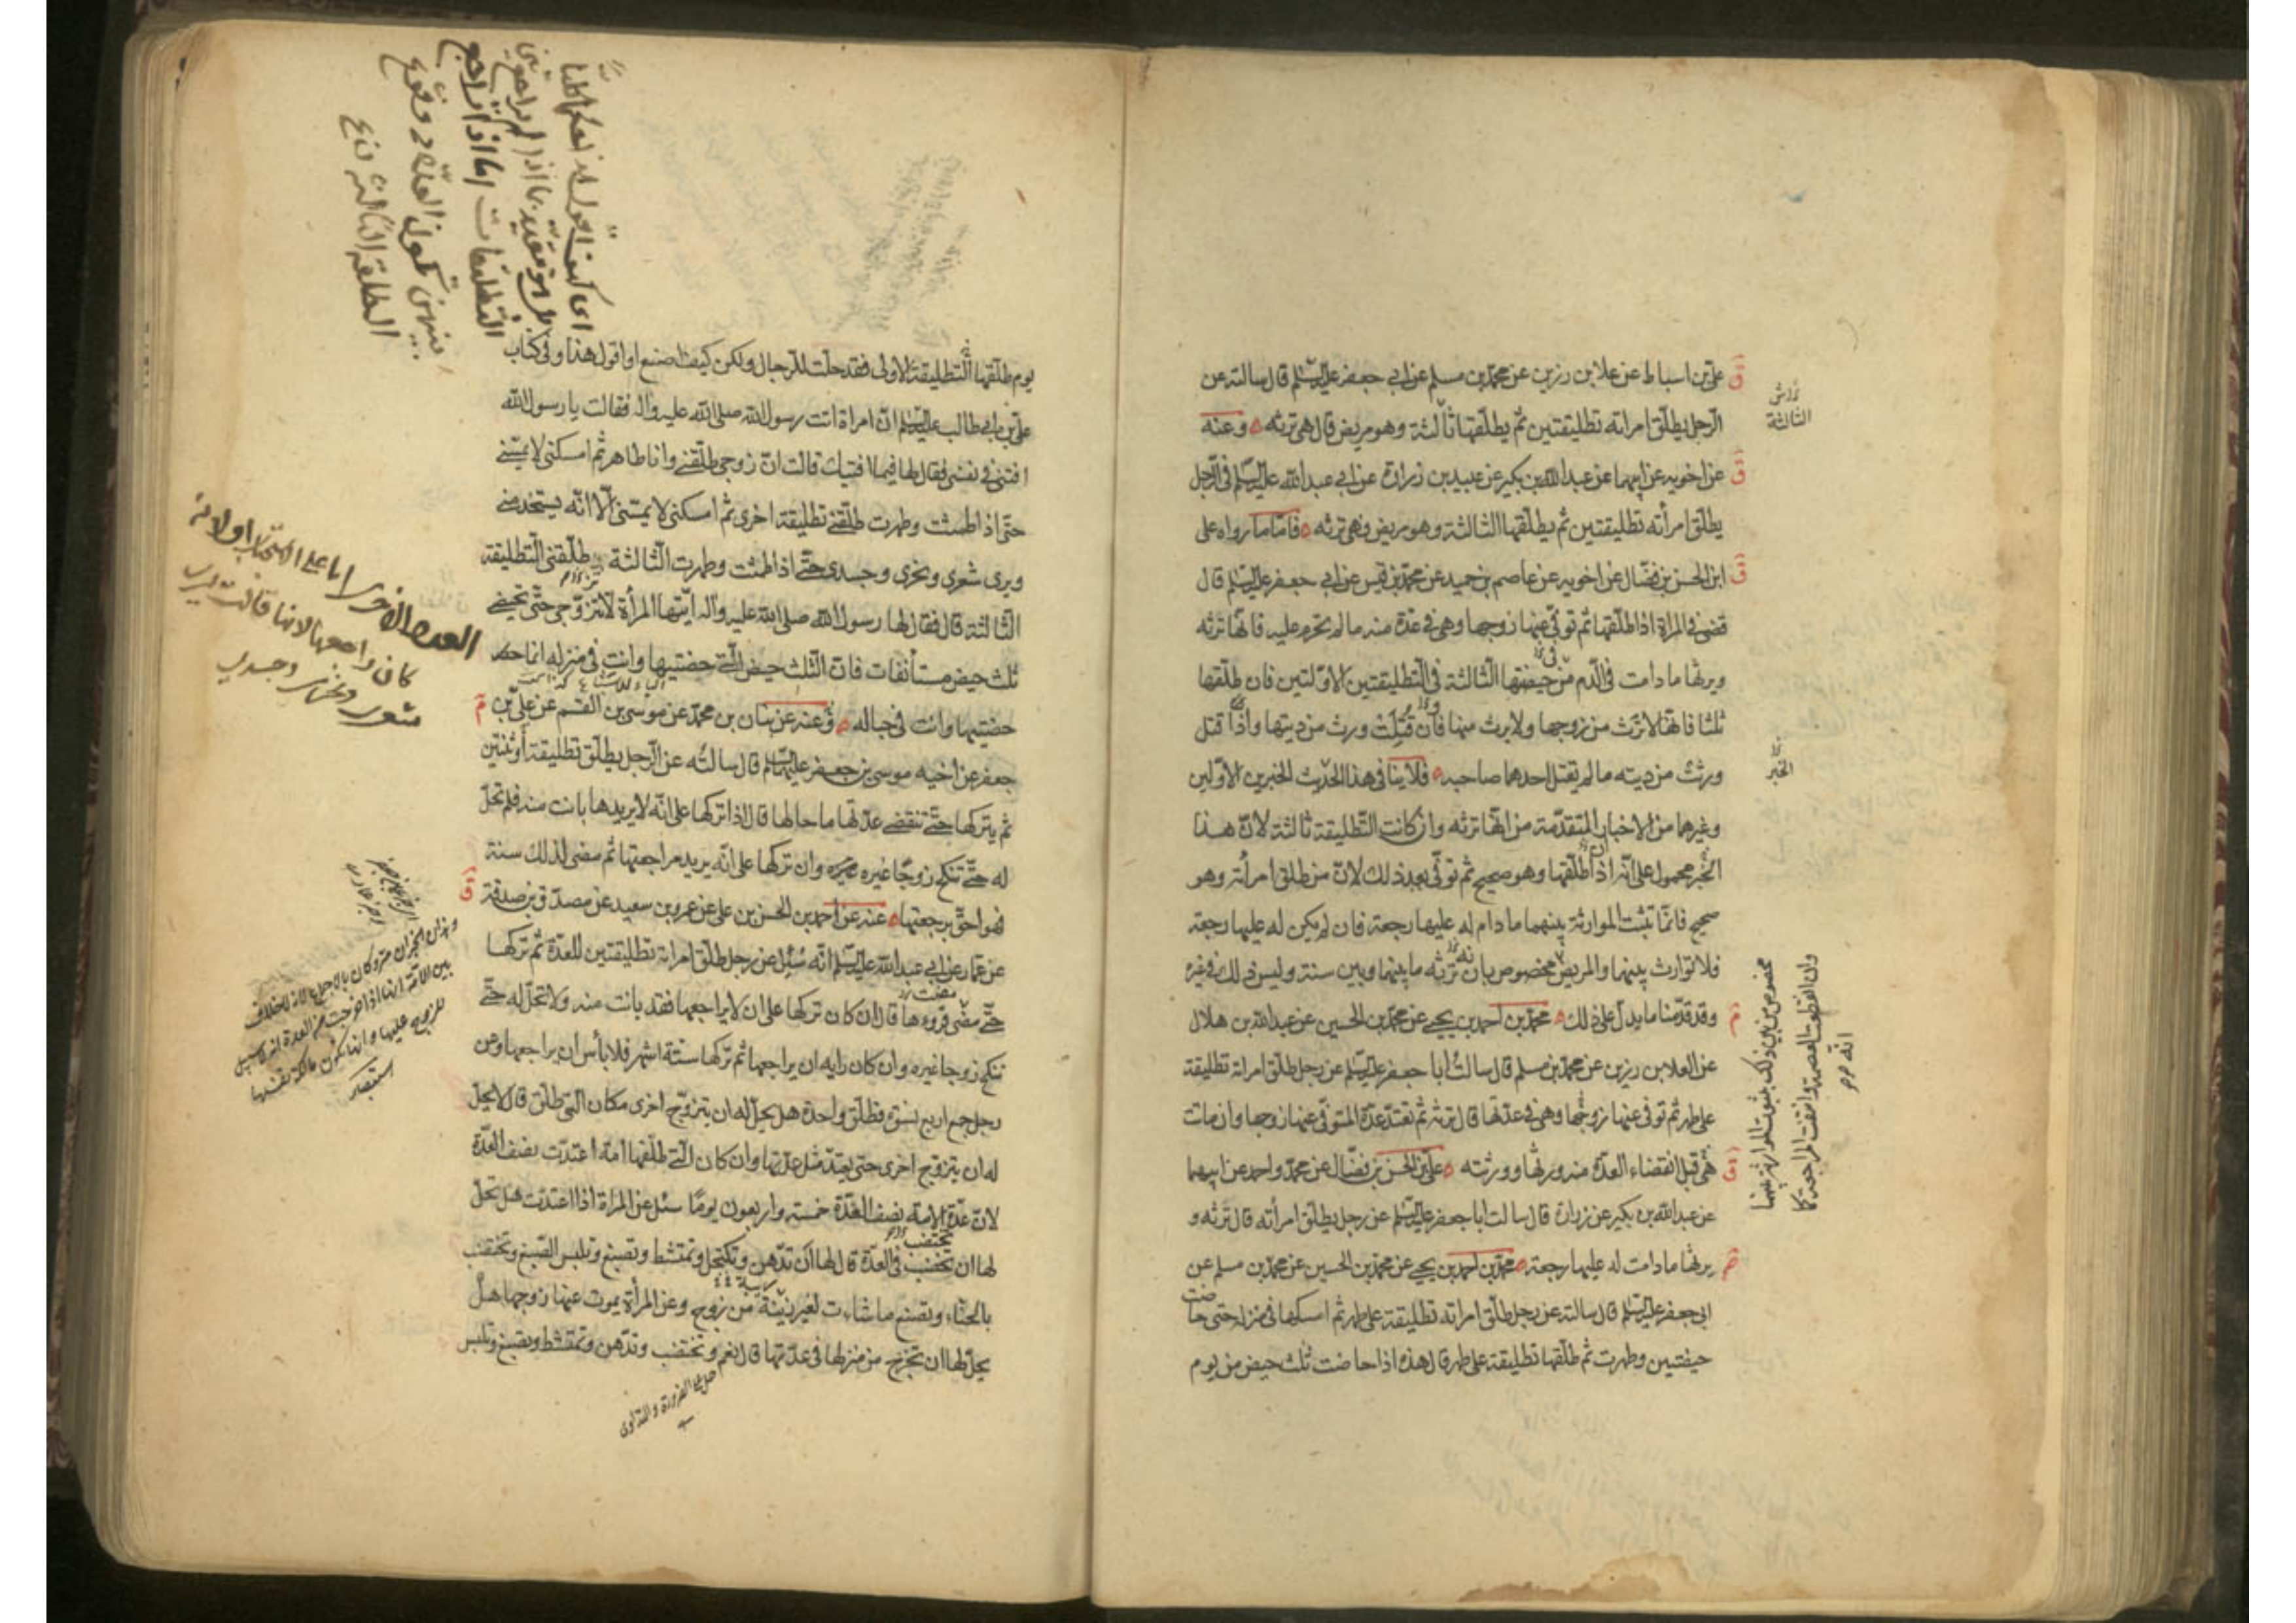 علي بن اسباط عن علا بن رزين عن محمد بن مسلم عن ابي جعفر عليه السلم قال سالته عن
الرجل يطلق امراته تطليقتين ثم يطلقها ثالثة وهو مريض قال هي ترثه وعنه
عن اخويه عن ابيهما عن عبد الله بن بكير عن عبيد بن زرارة عن ابي عبد الله عليه السلم في الرجل
يطلق امرأته تطليقتين ثم يطلقها الثالثة وهو مريض فهي ترثه فاما ما رواه علي
ابن الحسن بن فضال عن اخويه عن عاصم بن حميد عن محمد بن قيس عن ابي جعفر عليه السلم قال
قضى في المراة اذا طلقها ثم توفي عنها زوجها وهي في عدة منه ما لم تحرم عليه فانها ترثه
ويرثها ما دامت في الدم من حيضتها الثالثة في التطليقتين الاولتين فان طلقها
ثلثا فانها لا ترث من زوجها ولا يرث منها فان قتلت ورث من ديتها واذا قتل
ورثت من ديته ما لم يقتل احدهما صاحبه فلا ينافي هذا الحديث الخبرين الاولين
وغيرهما من الاخبار المتقدمة من انها ترثه وان كانت التطليقة ثالثة لان هذا
الخبر محمول على انه اذا طلقها وهو صحيح ثم توفي بعد ذلك لان من طلق امرأته وهو
صحيح فانما تثبت الموارثة بينهما ما دام له عليها رجعة فان لم يكن له عليها رجعة
فلا توارث بينهما والمريض مخصوص بان ترثه ما بينهما وبين سنة وليس ذلك في غيره
وقد قدمنا ما يدل على ذلك محمد بن احمد بن يحيى عن محمد بن الحسين عن عبد الله بن هلال
عن العلا بن رزين عن محمد بن مسلم قال سالت ابا جعفر عليه السلم عن رجل طلق امراته تطليقة
على طهر ثم توفي عنها زوجها وهي في عدتها قال ترثه ثم تعتد عدة المتوفى عنها زوجها وان ماتت
هي قبل انقضاء العدة منه ورثها وورثته علي بن الحسن بن فضال عن محمد واحمد عن ابيهما
عن عبد الله بن بكير عن زرارة قال سالت ابا جعفر عليه السلم عن رجل يطلق امرأته قال ترثه و
يرثها ما دامت له عليها رجعة محمد بن احمد بن يحيى عن محمد بن الحسين عن محمد بن مسلم عن
ابي جعفر عليه السلم قال سالته عن رجل طلق امراته تطليقة على طهر ثم امسكها في منزله حتى حاضت
حيضتين وطهرت ثم طلقها تطليقة على طهر قال هذه اذا حاضت ثلث حيض من يوم
الثالثة
الخبر
يوم طلقها التطليقة الاولى فقد حلت للرجال ولكن كيف اصنع او اقول هذا وفي كتاب
علي بن ابي طالب عليه السلم ان امراة اتت رسول الله صلى الله عليه واله فقالت يا رسول الله
افتني في نفسي فقال لها فيما افتيك قالت ان زوجي طلقني وانا طاهر ثم امسكني لا يمسني
حتى اذا طمثت وطهرت طلقني تطليقة اخرى ثم امسكني لا يمسني الا انه يستخدمني
ويرى شعري ونحري وجسدي حتى اذا طمثت وطهرت الثالثة طلقني التطليقة
الثالثة قال فقال لها رسول الله صلى الله عليه واله ايتها المرأة لا تتزوجي حتى تحيضي
ثلث حيض مستأنفات فان الثلث حيض التي حضتيها وانت في منزله انما
حضتيها وانت في حباله وعنه عن بنان بن محمد عن موسى بن القسم عن علي بن
جعفر عن اخيه موسى بن جعفر عليهما السلم قال سالته عن الرجل يطلق تطليقة او ثنتين
ثم يتركها حتى تنقضي عدتها ما حالها قال اذا تركها على انه لا يريدها بانت منه فلم تحل
له حتى تنكح زوجا غيره وان تركها على انه يريد مراجعتها ثم مضى لذلك سنة
فهو احق برجعتها عنه عن احمد بن الحسن بن علي عن عمرو بن سعيد عن مصدق بن صدقة
عن عمار عن ابي عبد الله عليه السلم انه سئل عن رجل طلق امراته تطليقتين للعدة ثم تركها
حتى مضى قروءها قال ان كان تركها على ان لا يراجعها فقد بانت منه ولا تحل له حتى
تنكح زوجا غيره وان كان رايه ان يراجعها ثم تركها ستة اشهر فلا بأس ان يراجعها وعن
رجل جمع اربع نسوة فطلق واحدة هل يحل له ان يتزوج اخرى مكان التي طلق قال لا يحل
له ان يتزوج اخرى حتى يعتد مثل عدتها وان كان التي طلقها امة اعتدت نصف العدة
لان عدة الامة نصف العدة خمسة واربعون يوما سئل عن المراة اذا اعتدت هل تحل
لها ان تختضب في العدة قال لها ان تدهن وتكتحل وتمتشط وتصبغ وتلبس الصبغ وتختضب
بالحناء وتصنع ما شاءت لغير زينة من زوج وعن المرأة يموت عنها زوجها هل
يحل لها ان تخرج من منزلها في عدتها قال نعم وتختضب وتدهن وتمتشط وتصبغ وتلبس